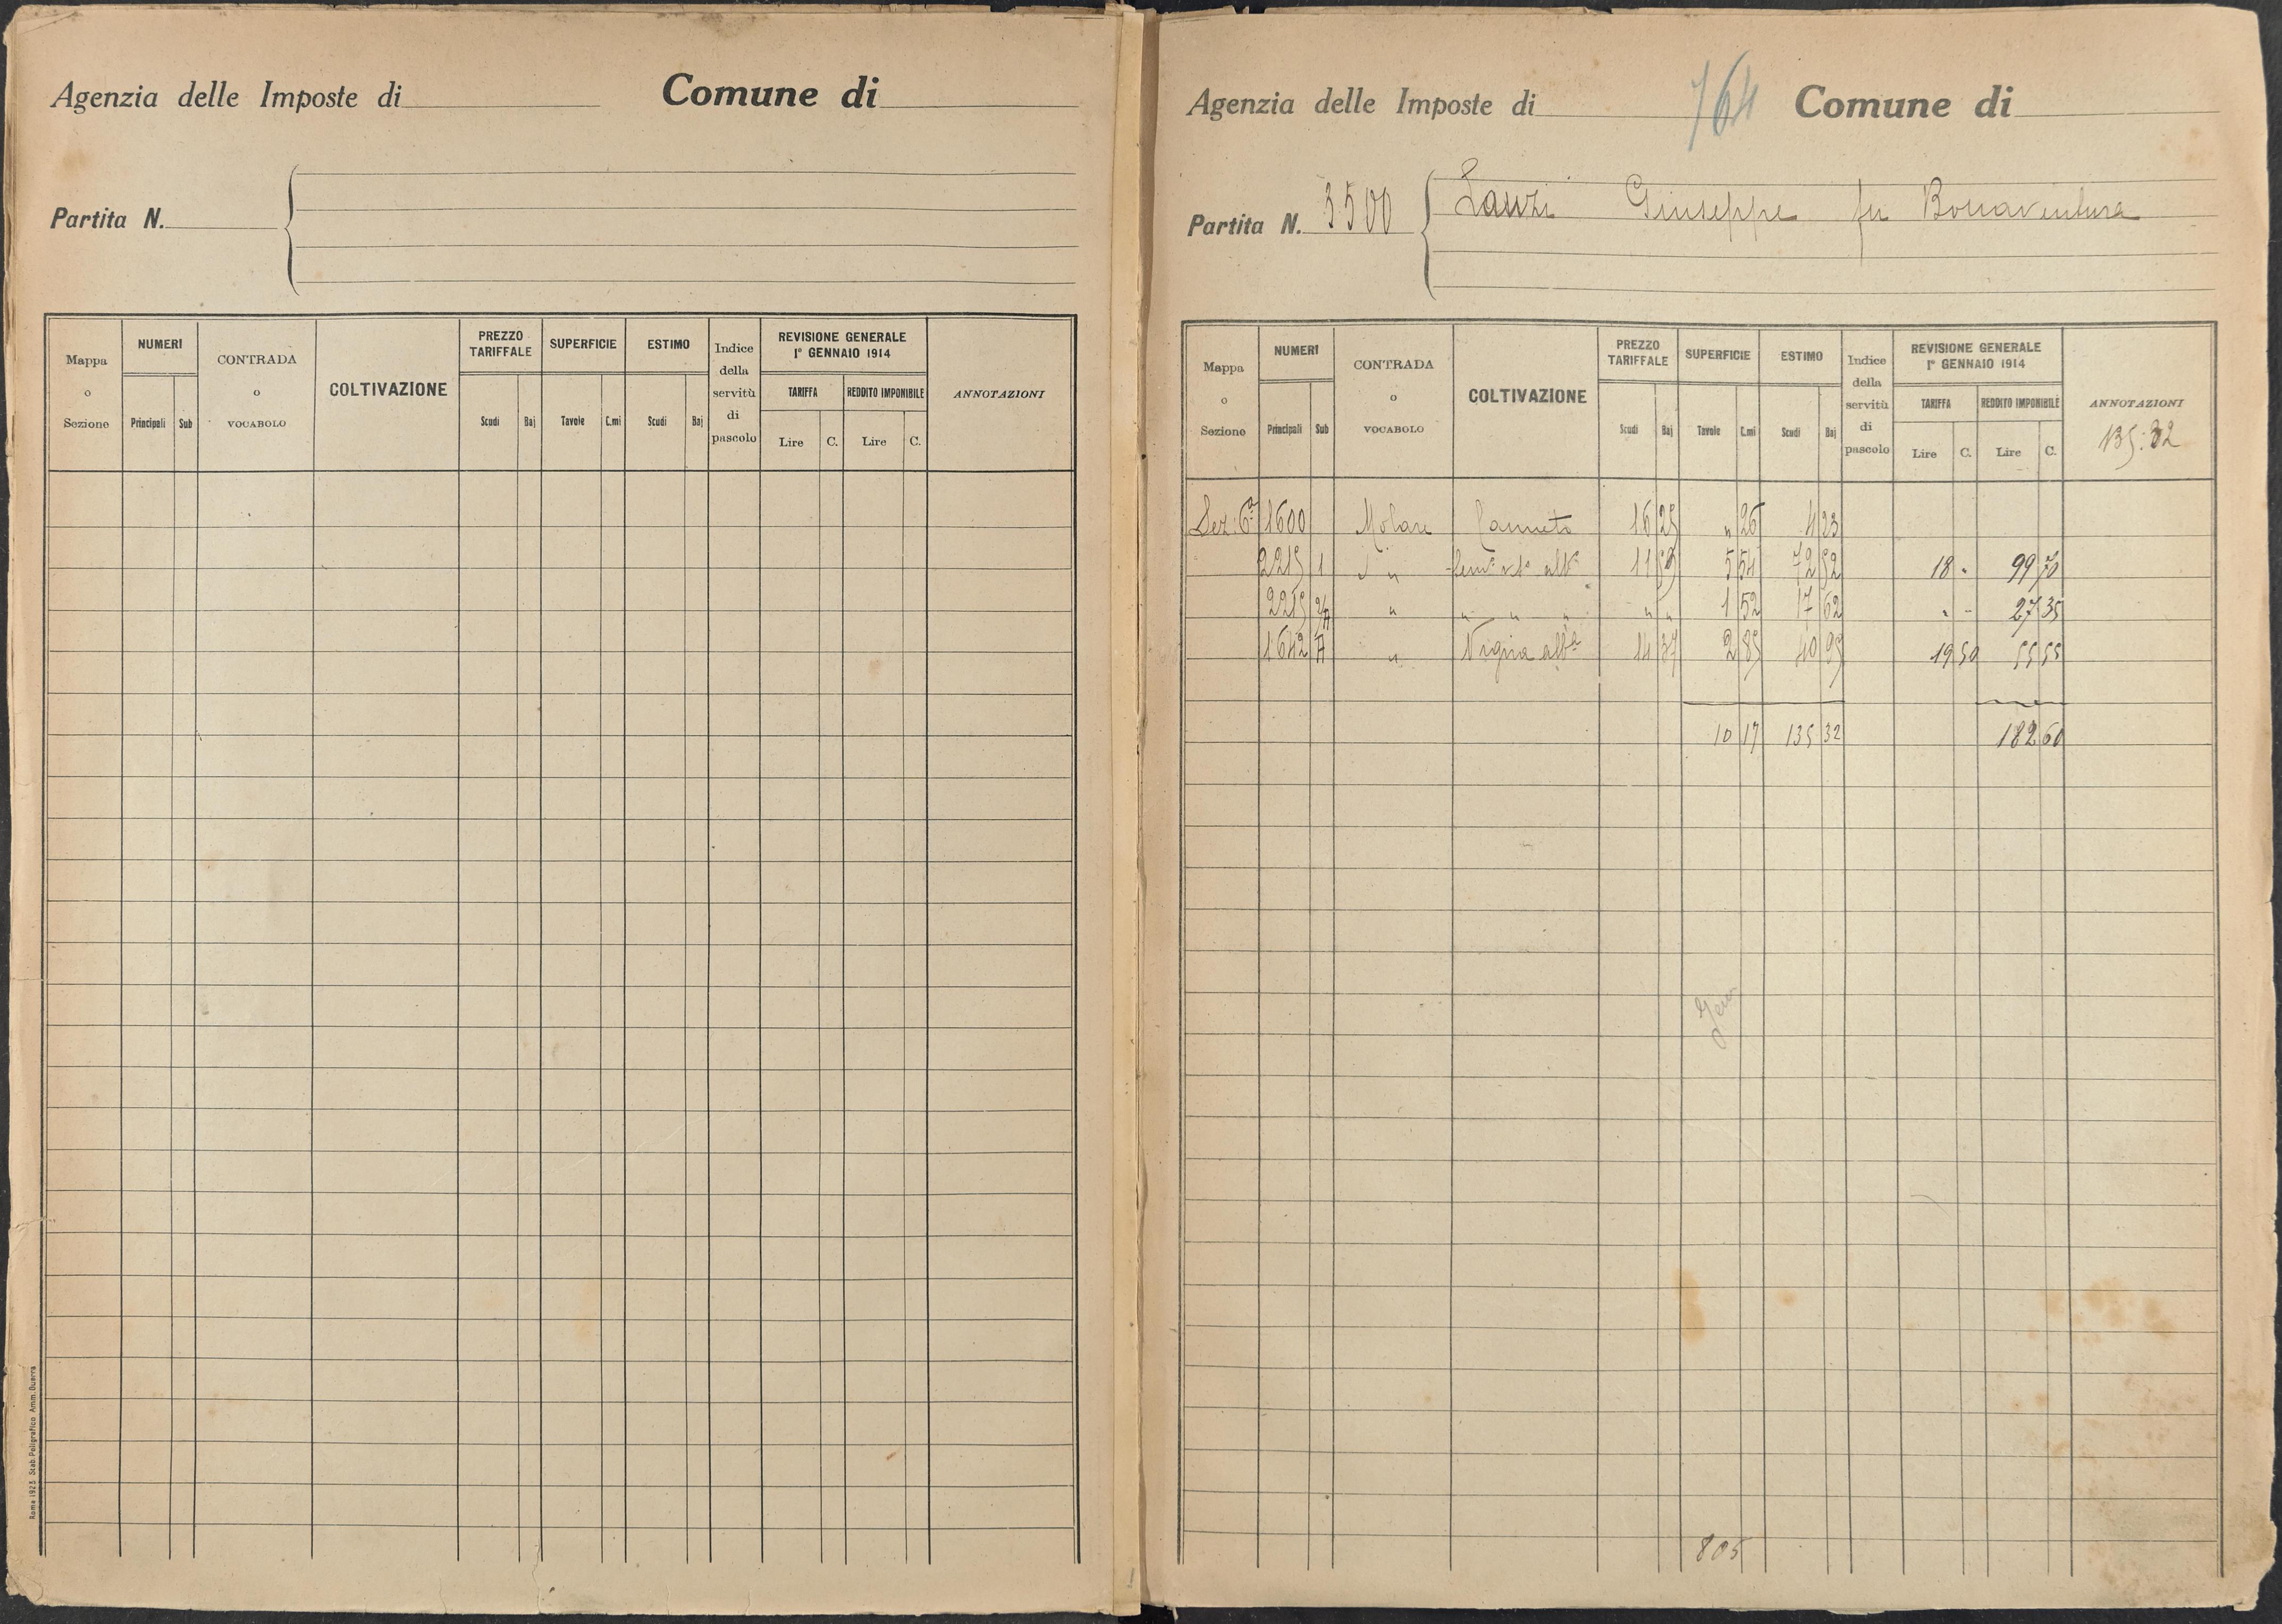 Agenzia delle Imposte di Comune di
Partita N.
Mappa o Sezione NUMERI Principali Sub CONTRADA o VOCABOLO COLTIVAZIONE PREZZO TARIFFALE Scudi Baj SUPERFICIE Tavole C.mi ESTIMO Scudi Baj Indice della servitù di pascolo REVISIONE GENERALE 1º GENNAIO 1914 TARIFFA Lire C. REDDITO IMPONIBILE Lire C. ANNOTAZIONI
Roma 1923 Stab. Poligrafico Amm. Guerra
764
Agenzia delle Imposte di Comune di
Partita N. 3500 Lanzi Giuseppe fu Bonaventura
Mappa o Sezione NUMERI Principali Sub CONTRADA o VOCABOLO COLTIVAZIONE PREZZO TARIFFALE Scudi Baj SUPERFICIE Tavole C.mi ESTIMO Scudi Baj Indice della servitù di pascolo REVISIONE GENERALE 1º GENNAIO 1914 TARIFFA Lire C. REDDITO IMPONIBILE Lire C. ANNOTAZIONI
135:32
Sez: 6ª 1600 Molare Canneto 16 25 " 26 4 23
2215 1 " " 11 59 5 54 72 52 18 " 99 70
2215 2/A " " " " " " 1 52 17 62 " " 27 35
1642 A " Vigna albª 14 37 2 85 40 95 19 50 55 55
10 17 135 32 182 60
805